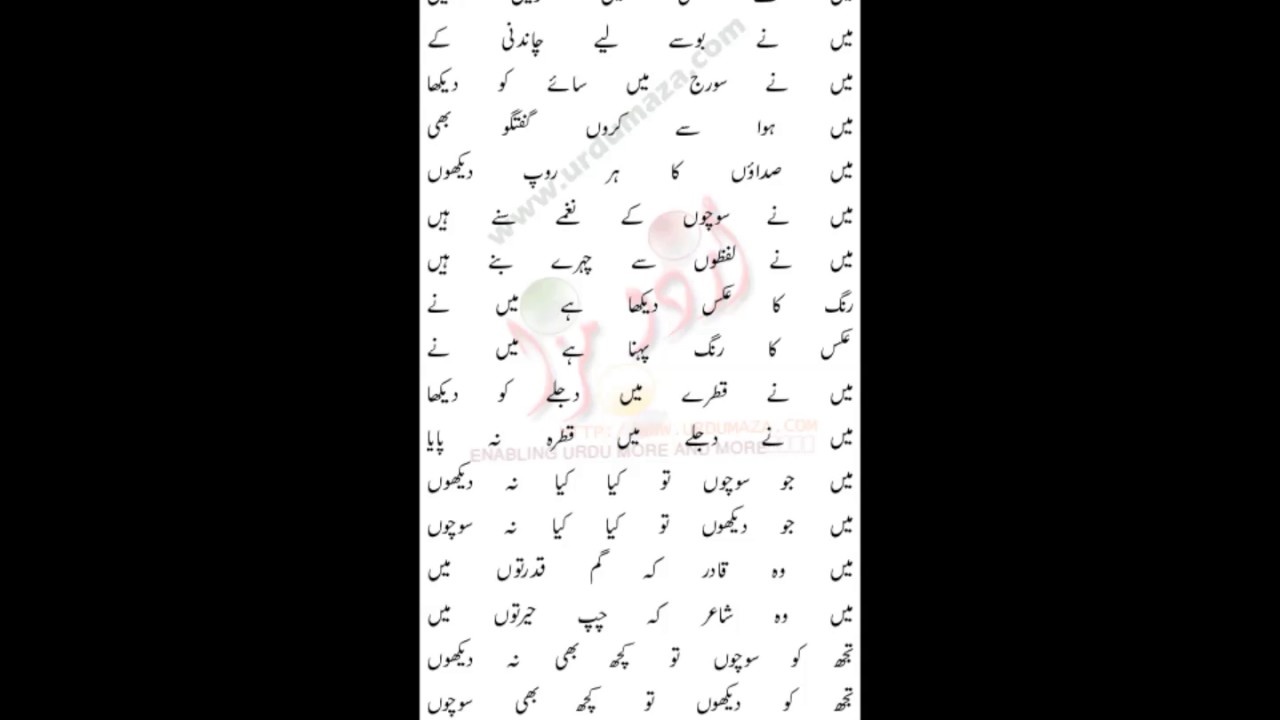 میں نے بوسے لیے چاندنی کے
میں نے سورج میں سائے کو دیکھا
میں ہوا سے کروں گفتگو بھی
میں صداؤں کا ہر روپ دیکھوں
میں نے سوچوں کے نغمے سنے ہیں
میں نے لفظوں سے چہرے بنے ہیں
رنگ کا عکس دیکھا ہے میں نے
عکس کا رنگ پہنا ہے میں نے
میں نے قطرے میں دجلے کو دیکھا
میں نے دجلے میں قطرہ نہ پایا
میں جو سوچوں تو کیا کیا نہ دیکھوں
میں جو دیکھوں تو کیا کیا نہ سوچوں
میں وہ قادر کہ گم قدرتوں میں
میں وہ شاعر کہ چپ حیرتوں میں
تجھ کو سوچوں تو کچھ بھی نہ دیکھوں
تجھ کو دیکھوں تو کچھ بھی سوچوں
www.urdumaza.com
HTTP://WWW.URDUMAZA.COM
ENABLING URDU MORE AND MORE